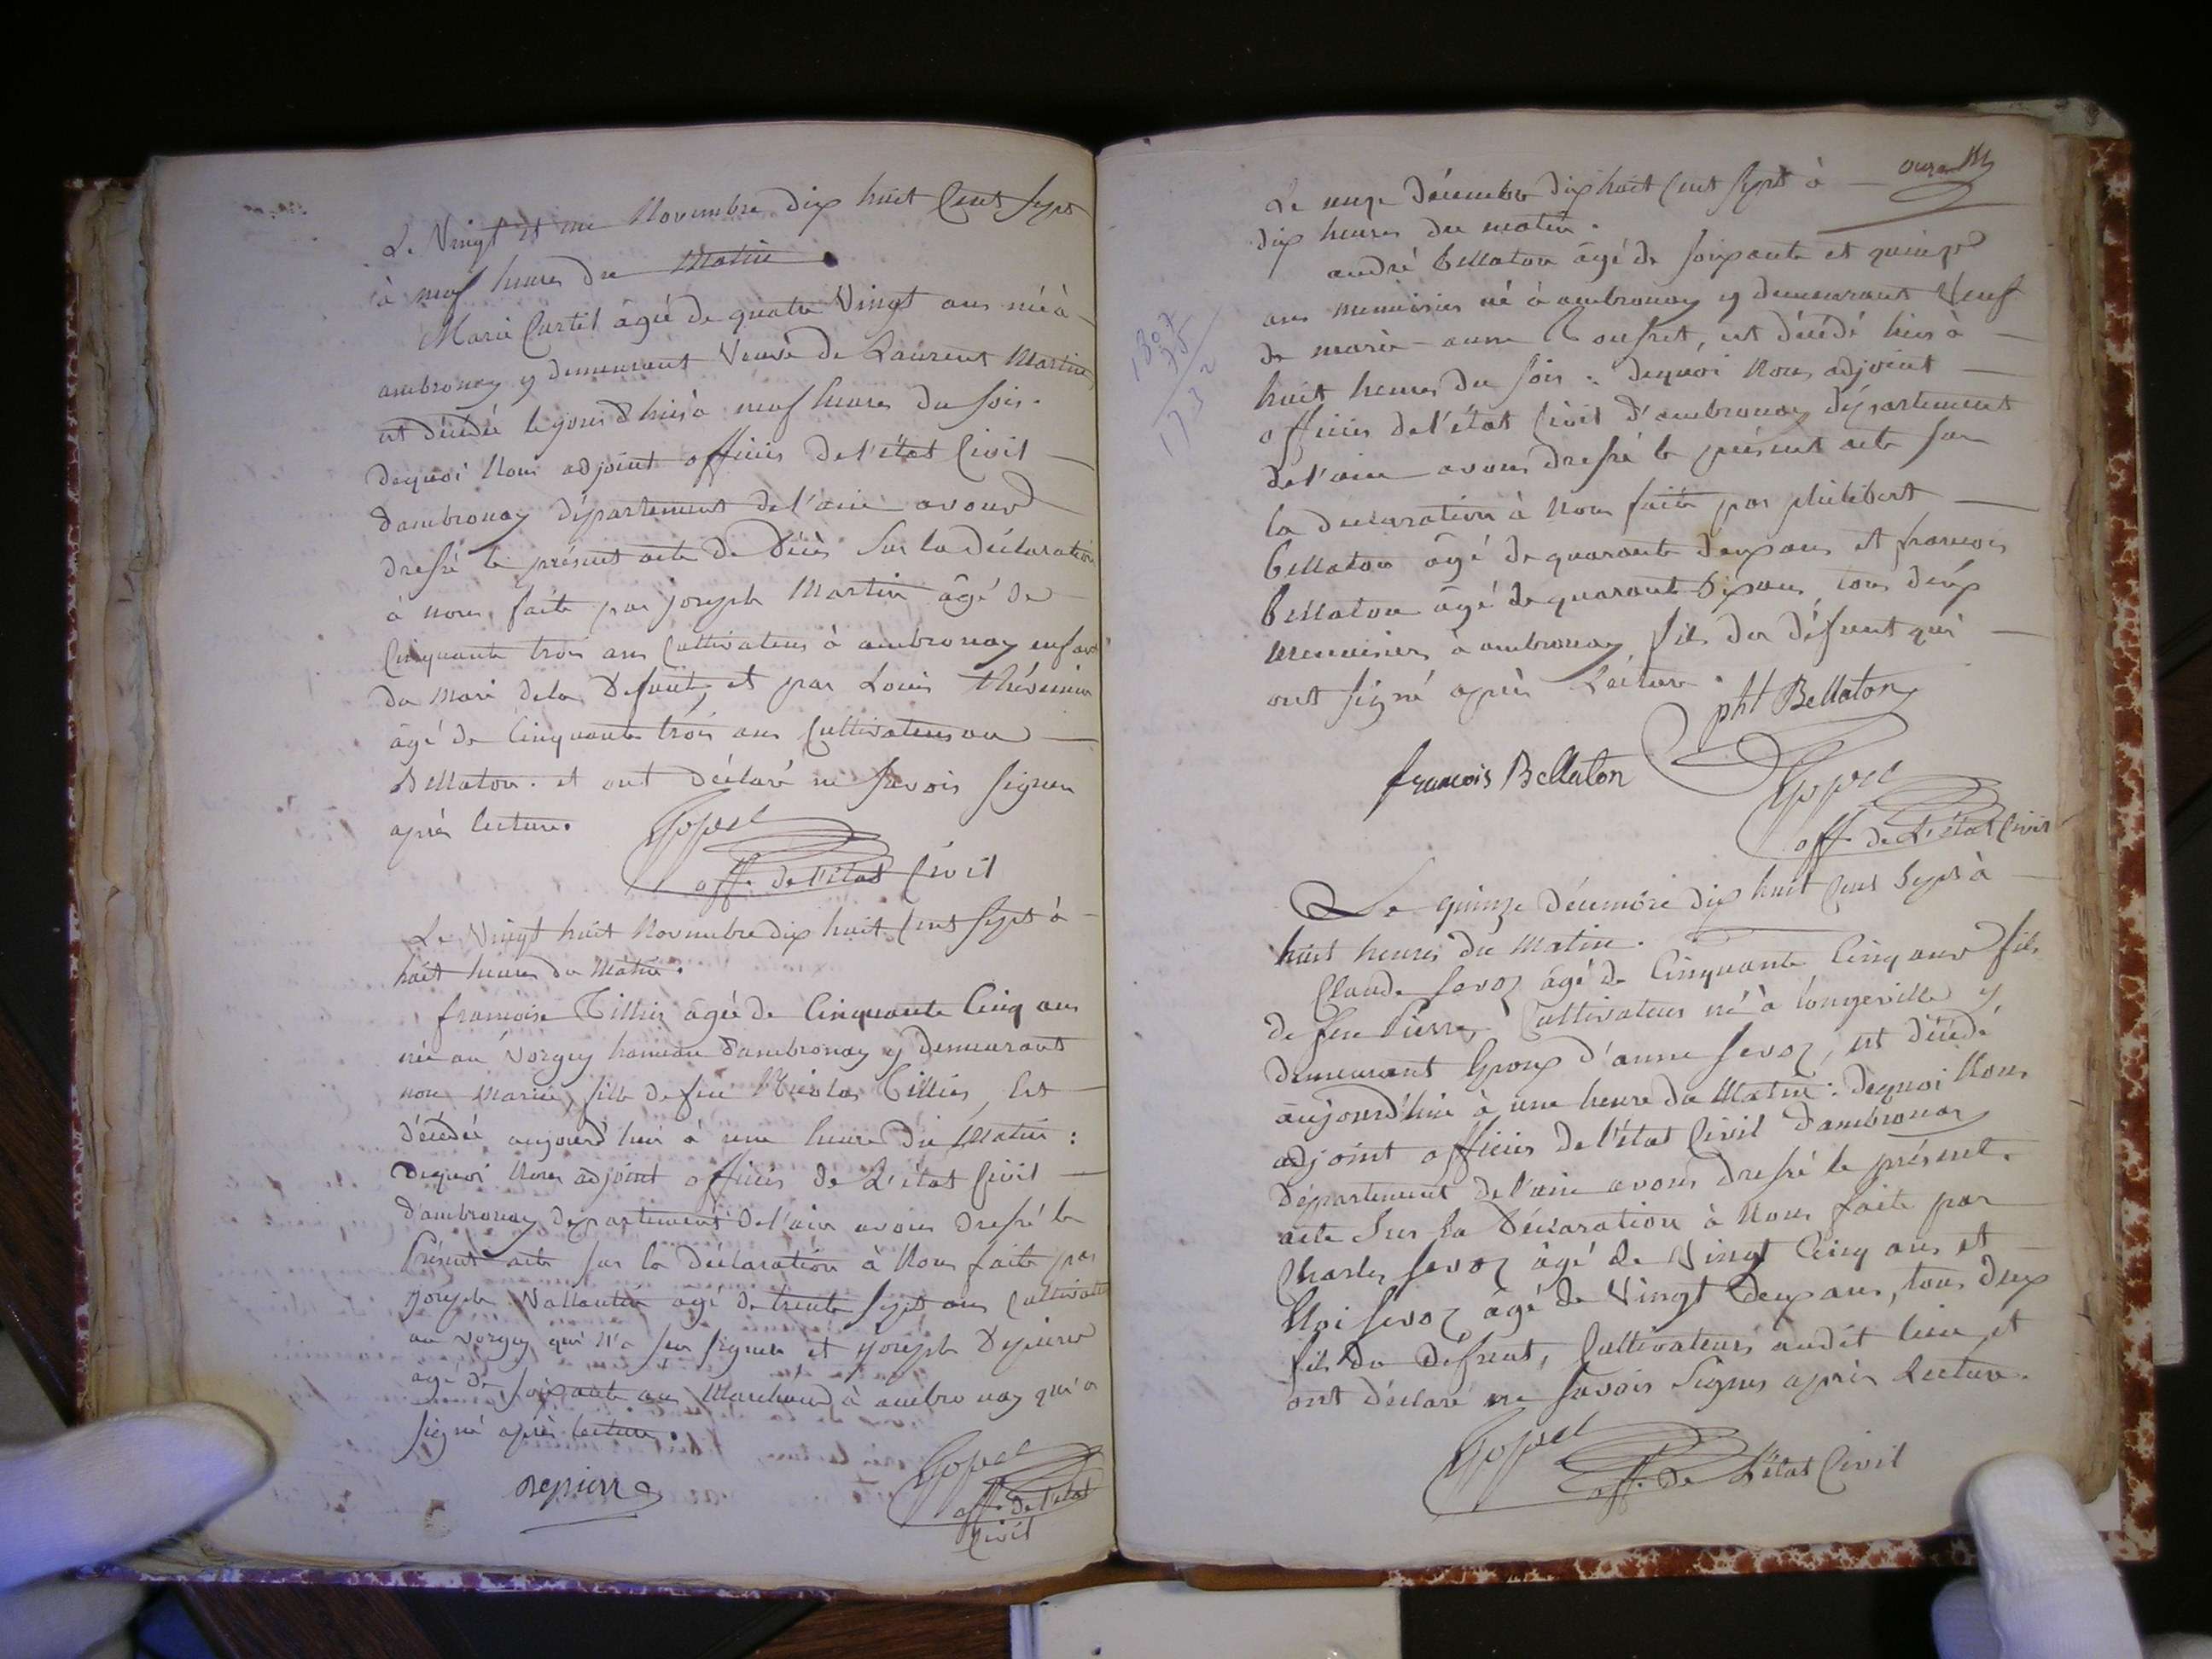 Le Vingt et un Novembre dix huit Cent Sept
à neuf heures du Matin.
Marie Curtil âgée de quatre Vingt ans née à
ambronay y demeurant Veuve de Laurent Martin
est décédée le jour d'hier à neuf heures du soir.
dequoi Nous adjoint officier de l'état Civil
d'ambronay département de l'ain avons
dressé le présent acte de décès sur la déclaration
à nous faite par joseph Martin âgé de
Cinquante trois ans Cultivateur à ambronay enfant
du Mari dela Defunte, et par Louis thévenin
âgé de Cinquante trois ans Cultivateur au
Bellaton. et ont déclaré ne savoir signer
après lecture.
off. de l'état Civil
Le Vingt huit Novembre dix huit Cent Sept à
huit heures du Matin.
francoise Tillier âgée de Cinquante Cinq ans
née au Vorgey hameau d'ambronay y demeurant
non Mariée, fille de feu Nicolas Tillier, Est
décédée aujourd'hui à une heure du Matin :
dequoi Nous adjoint officier de L'état Civil
d'ambronay département de l'ain avons dressé le
Présent acte sur la déclaration à Nous faite par
joseph Vallantin agé de trente Sept ans Cultivateur
au vorgey qui n'a su signer et joseph Depierre
agé de soixante ans Marchand à ambronay qui a
signé après lecture.
Depierre
off. de l'état
Civil
Le onze décembre dix huit Cent Sept à
dix heures du matin.
andré Bellaton âgé de soixante et quinze
ans menuisier né à ambronay y demeurant Veuf
de marie-anne, est décédé hier à
huit heures du soir : dequoi Nous adjoint
officier de l'état Civil d'ambronay département
de l'ain avons dressé le présent acte sur
la declaration à Nous faite par philibert
Bellaton âgé de quarante deux ans et francois
Bellaton âgé de quarante Six ans, tous deux
menuisiers à ambronay, fils du défunt qui
ont signé après Lecture.
pht Bellaton
francois Bellaton
off. de L'état Civil
1807
75
1732
Le quinze décembre dix huit Cent Sept à
huit heures du Matin.
Claude Sevoz âgé de Cinquante Cinq ans fils
de feu Pierre, Cultivateur né à longeville y
demeurant Epoux d'anne Sevoz, est décédé
aujourd'hui à une heure du Matin : dequoi Nous
adjoint officier de l'état Civil d'ambronay
département de l'ain avons dressé le présent
acte Sur La déclaration à Nous faite par
Charles Sevoz âgé de Vingt Cinq ans et
Eloi Sevoz âgé de Vingt deux ans, tous deux
fils du défunt, Cultivateurs audit lieu et
ont déclaré ne savoir Signer après Lecture.
off. de L'état Civil